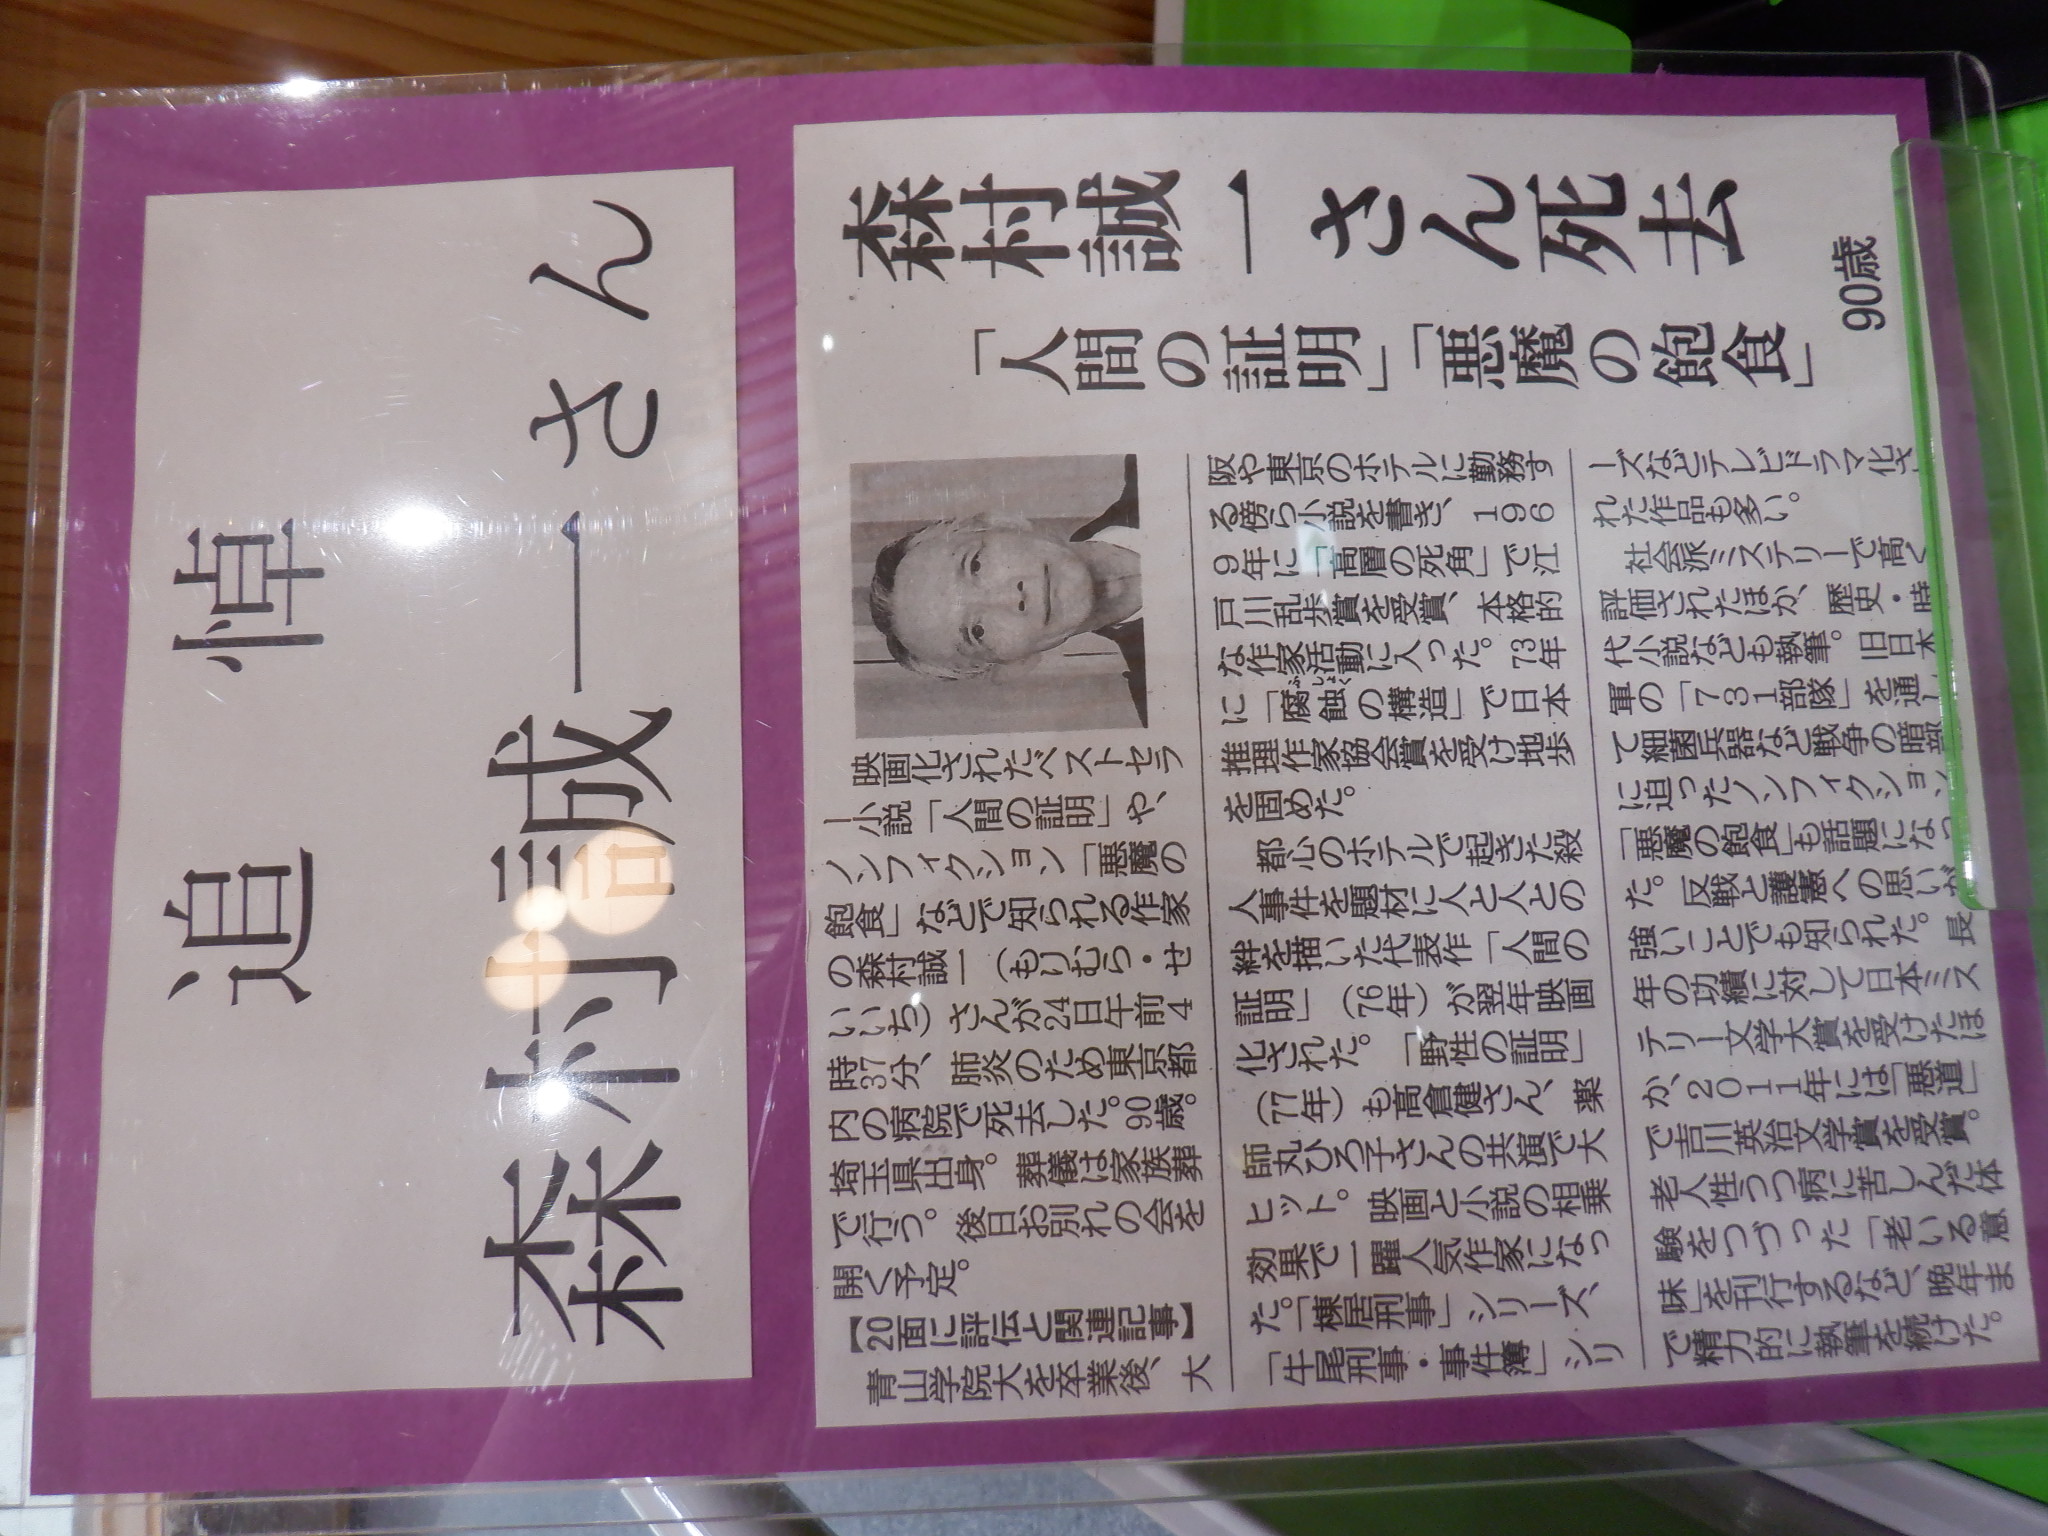 追悼
森村誠一さん
森村誠一さん死去
90歳
「人間の証明」「悪魔の飽食」
映画化されたベストセラ
ー小説「人間の証明」や、
ノンフィクション「悪魔の
飽食」などで知られる作家
の森村誠一（もりむら・せ
いいち）さんが24日午前4
時37分、肺炎のため東京都
内の病院で死去した。90歳。
埼玉県出身。葬儀は家族葬
で行う。後日お別れの会を
開く予定。
【20面に評伝と関連記事】
青山学院大を卒業後、大
阪や東京のホテルに勤務す
る傍ら小説を書き、196
9年に「高層の死角」で江
戸川乱歩賞を受賞、本格的
な作家活動に入った。73年
に「腐蝕ふしょくの構造」で日本
推理作家協会賞を受け地歩
を固めた。
都心のホテルで起きた殺
人事件を題材に人と人との
絆を描いた代表作「人間の
証明」（76年）が翌年映画
化された。「野性の証明」
（77年）も高倉健さん、薬
師丸ひろ子さんの共演で大
ヒット。映画と小説の相乗
効果で一躍人気作家になっ
た。「棟居刑事」シリーズ、
「牛尾刑事・事件簿」シリ
ーズなどテレビドラマ化さ
れた作品も多い。
社会派ミステリーで高く
評価されたほか、歴史・時
代小説なども執筆。旧日本
軍の「731部隊」を通し
て細菌兵器など戦争の暗部
に迫ったノンフィクション
「悪魔の飽食」も話題になっ
た。反戦と護憲への思いが
強いことでも知られた。長
年の功績に対して日本ミス
テリー文学大賞を受けたほ
か、2011年には「悪道」
で吉川英治文学賞を受賞。
老人性うつ病に苦しんだ体
験をつづった「老いる意
味」を刊行するなど、晩年ま
で精力的に執筆を続けた。